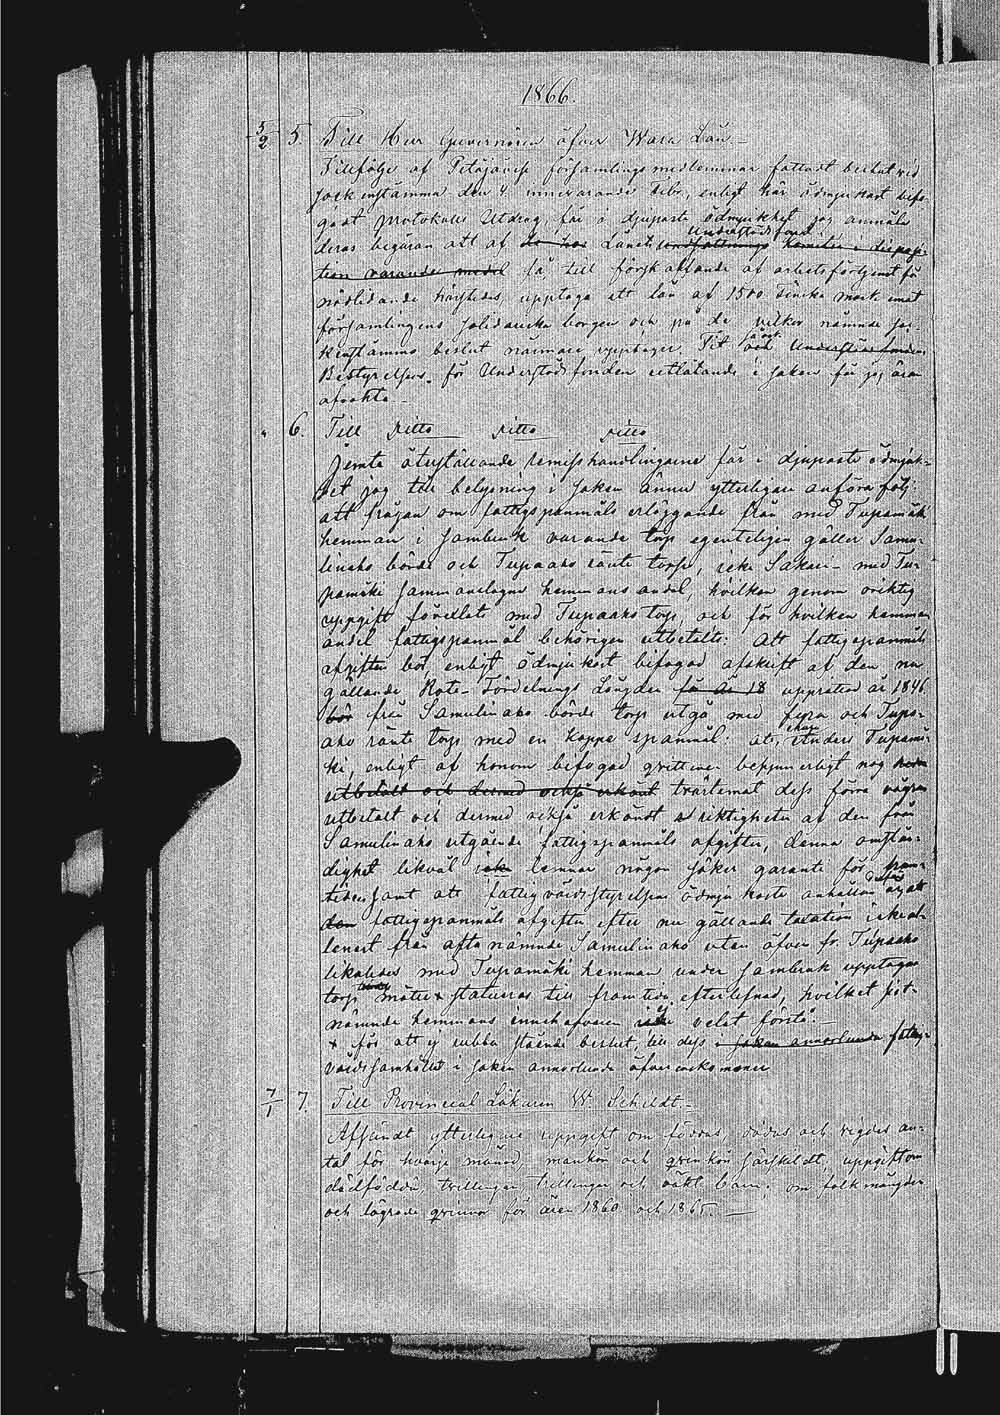 1866.
5/2 5. Till Herr Guvernören öfver Wasa Län.—
Tillfölje af Petäjävesi församlings medlemmar fattadt beslut vid
sockenstämma den 4 innevarande Febr., enligt här ödmjukast bifo-
gadt protokolls Utdrag, får i djupaste ödmjukhet jag anmäla
deras begäran att af de hos Länets understödsfond undsättnings Komiten i disposi-
tion varande medel få till försskaffande af arbetsförtjenst för
nödlidande härstädes, upptaga ett lån af 1500 Finska mark emot
församlingens solidariska borgen och på de vilkor nämnde soc-
kenstämmo beslut närmare upptager. Till och Understödsfondens
Bestyrelsen för Understödsfonden utlåtande i saken får jag äran
afvakta.—
" 6. Till ditto ditto ditto
Jemte återställande remisshandlingarne får i djupaste ödmjuk-
het jag till belysning i saken ännu ytterligare anföra följ:
att frågan om fattigspanmåls erläggande från med Tupamäki
hemman i sambruk varande torp egenteligen gäller Samu-
linaho börds och Tupaaho ränte torp, icke Sakari - med Tu-
pamäki sammanslagne hemmans andel, hvilken genom oriktig
uppgift förvexlats med Tupaaho torp, och för hvilken hemmans
andel fattigspanmål behörigen utbetalts: Att fattigspanmåls
afgiften bör enligt ödmjukast bifogad afskrift af den nu
gällande Rote-Fördelnings Längden för år 18 upprättad år 1846
bör från Samulinaho börds torp utgå med fyra och Tupa-
aho ränte torp med en kappe spanmål: att, ehuru Anders Tupamä-
ki, enligt af honom bifogad qvittence bekymmerligt nog hade
utbetalt och dermed också erkänt tvärtemot dess förra vägran
utbetalt och dermed också erkändt riktigheten af den från
Samulinaho utgående fattigspanmåls afgiften, denna omstän-
dighet likväl icke lemnar någon säker garanti för fram-
tiden samt att fattigvårdsstyrelsen ödmjukaste anhållan är att
den fattigspanmåls afgiften efter nu gällande taxation icke al-
lenast från ofta nämnde Samulinaho utan äfven fr. Tupaaho
likaledes med Tupamäki hemman under sambruk upptagne
torp måtte x statueras till framtida efterlefnad, hvilket sist-
nämnde hemmans innehafvaren icke ej velat förstå.—
x för att ej rubba stående beslut, till dess i saken annorlunda fattig-
vårdssamhället i saken annorlunda öfverenskommer
7/1 7. Till Provincial Läkaren W. Schildt.—
Afsändt ytterligare uppgift om födde, döde och vigdes an-
tal för hvarje månad, mankön och qvinkön särskildt, uppgift om
dödfödda, tvillingar, trillingar och oäkt barn; om folkmängden
och lägrade qvinnor för åren 1860 och 1865.—